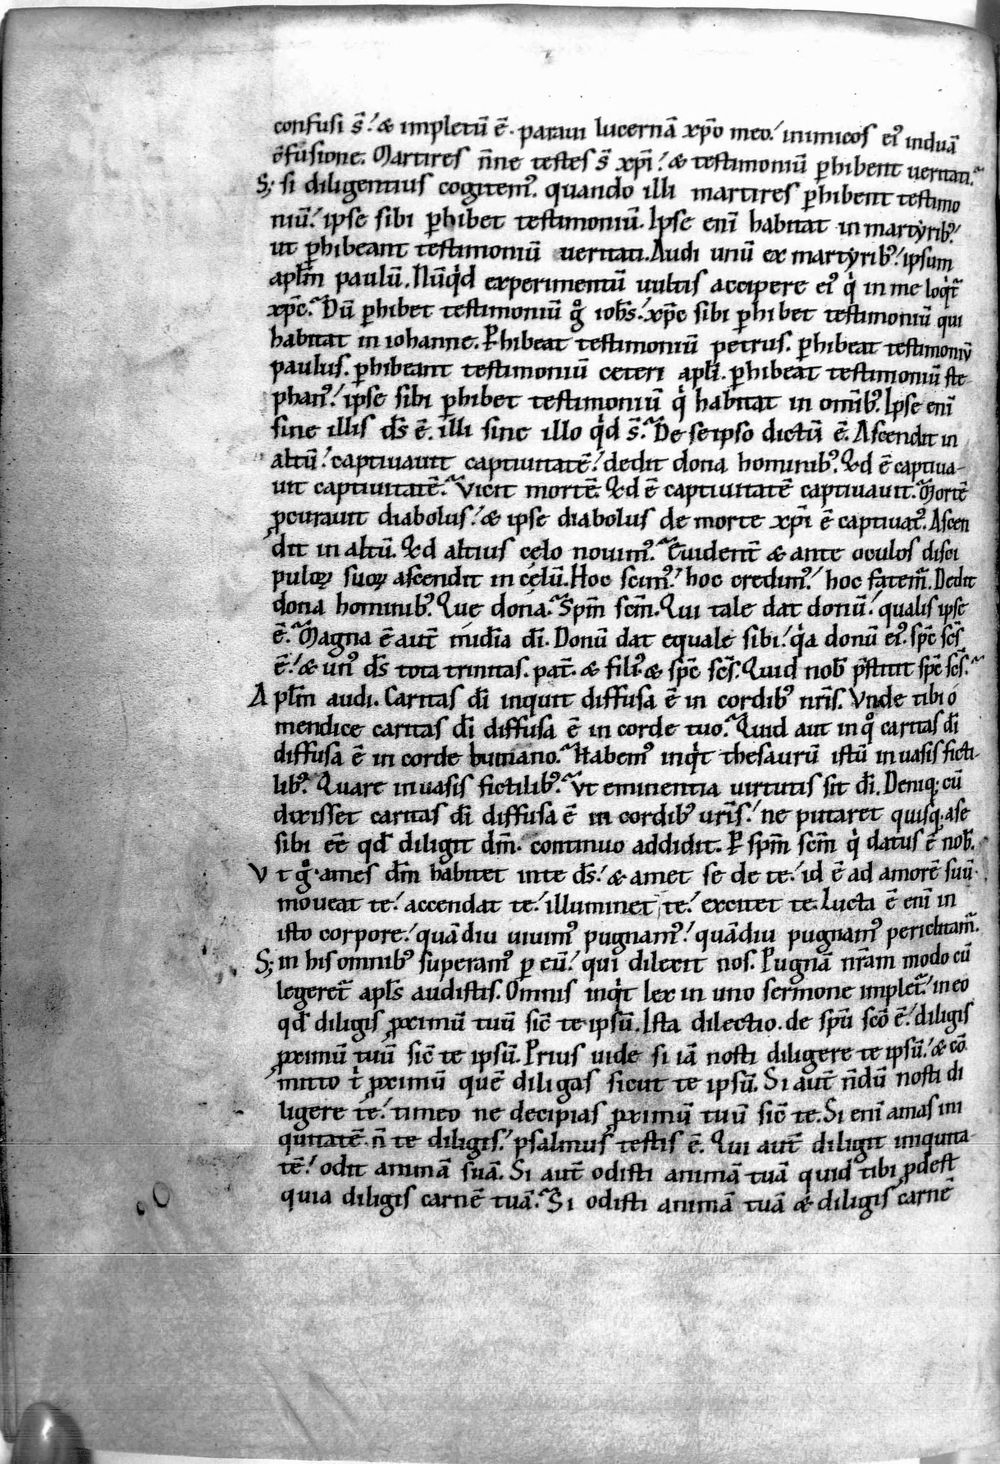 confusi s̄. & impletū ē. paraui lucernā xp̄o meo. inimicos eiꝰ induā
ↄ̄fusione. Martires ñne testes s̄ xp̄i. & testimoniū ꝑhibent ueritati.
S; si diligentius cogitemꝰ. quando illi martires ꝑhibent testimo
niū. ipse sibi ꝑhibet testimoniū. Ipse eni̅ habitat in martyribꝰ.
ut ꝑhibeant testimoniū ueritati. Audi unū ex martyribꝰ. ipsum
aplm̄ paulū. Nūqͥd experimentū uultis accipere eiꝰ qͥ in me loqͥt̄
xp̄c. Dū ꝑhibet testimoniū gͦ ioh̄s. xp̄c sibi ꝑhibet testimoniū qui
habitat in iohanne. Ꝑhibeat testimoniū petrus. ꝑhibeat testimoniū
paulus. ꝑhibeant testimoniū ceteri apl̄i. ꝑhibeat testimoniū ste
phanꝰ. ipse sibi ꝑhibet testimoniū qͥ habitat in om̄ibꝰ. Ipse eni̅
sine illis ds̄ ē. illi sine illo qͥd s̄. De seipso dictū ē. Ascendit in
altū. captiuauit captiuitatē. dedit dona hominibꝰ. Qd ē captiua-
uit captiuitatē. Vicit mortē. Qd ē captiuitatē captiuauit. Mortē
ꝓcurauit diabolus. & ipse diabolus de morte xp̄i ē captiuatꝰ. Ascen
dit in altū. Qd altius cęlo nouimꝰ. Euident̄ & ante oculos disci
puloꝝ suoꝝ ascendit in cęlū. Hoc scimꝰ. hoc credimꝰ. hoc fatem̄. Dedit
dona hominibꝰ. Que dona. Spm̄ scm̄. Qui tale dat donū. qualis ipse
ē. Magna ē aut̄ mi̅dia di̅. Donū dat equale sibi. qͥa donū eiꝰ. spc̄ scs̄
ē. & unꝰ ds̄ tota trinitas. pat̄. & filiꝰ & spc̄ scs̄. Quid nob̄ p̄stitit spc̄ scs̄.
Aplm̄ audi. Caritas di̅ inquit diffusa ē in cordibꝰ nr̄is. Vnde tibi o
mendice caritas di̅ diffusa ē in corde tuo. Quid aut in qͦ caritas di̅
diffusa ē in corde humano. Habemꝰ inqͥt thesaurū istū in uasis ficti-
libꝰ. Quare in uasis fictilibꝰ. Vt eminentia uirtutis sit di̅. Deniq; cū
dixisset caritas di̅ diffusa ē in cordibꝰ ur̄is. ne putaret quisq; a se
sibi ēe qd̄ diligit dm̄. continuo addidit. Ꝑ spm̄ scm̄ qͥ datus ē nob̄.
Vt gͦ ames dm̄ habitet in te ds̄. & amet se de te. id ē ad amorē suū
moueat te. accendat te. illuminet te. excitet te. Lucta ē eni̅ in
isto corpore. quādiu uiuimꝰ pugnamꝰ. quādiu pugnamꝰ periclitam̄.
S; in his omnibꝰ superamꝰ ꝑ eū. qui dilexit nos. Pugnā nr̄am modo cū
legeret̄ apl̄s audistis. Omnis inqͥt lex in uno sermone implet̄. in eo
qd̄ diligis ꝓximū tuū sic̄ te ipsū. Ista dilectio de spū scō ē. diligis
ꝓximū tuū sic̄ te ipsū. Prius uide si iā nosti diligere te ipsū. & cō
mitto tͥ ꝓximū quē diligas sicut te ipsū. Si aut̄ n̄dū nosti di
ligere te. timeo ne decipias ꝓximū tuū sic̄ te. Si eni̅ amas ini
quitatē. n̄ te diligis. psalmus testis ē. Qui aut̄ diligit iniquita-
tē. odit animā suā. Si aut̄ odisti animā tuā quid tibi ꝓdest
quia diligis carnē tuā. Si odisti animā tuā & diligis carnē